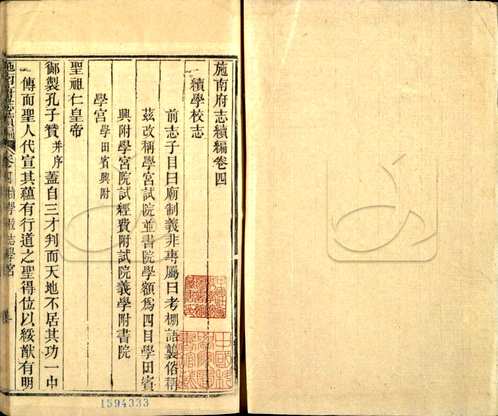 施南府志續編卷四
續學校志
前志子目曰廟制義非專屬曰考棚語襲俗稱
茲改稱學宮試院並書院學額爲四目學田賓
興附學宮院試經費附試院義學附書院
學宮 學田賓興附
聖祖仁皇帝
御製孔子贊 并序 蓋自三才判而天地不居其功一中
傳而聖人代宣其蘊有行道之聖得位以綏猷有明
施南府志續編 卷四 續學校志 學宮
1594333